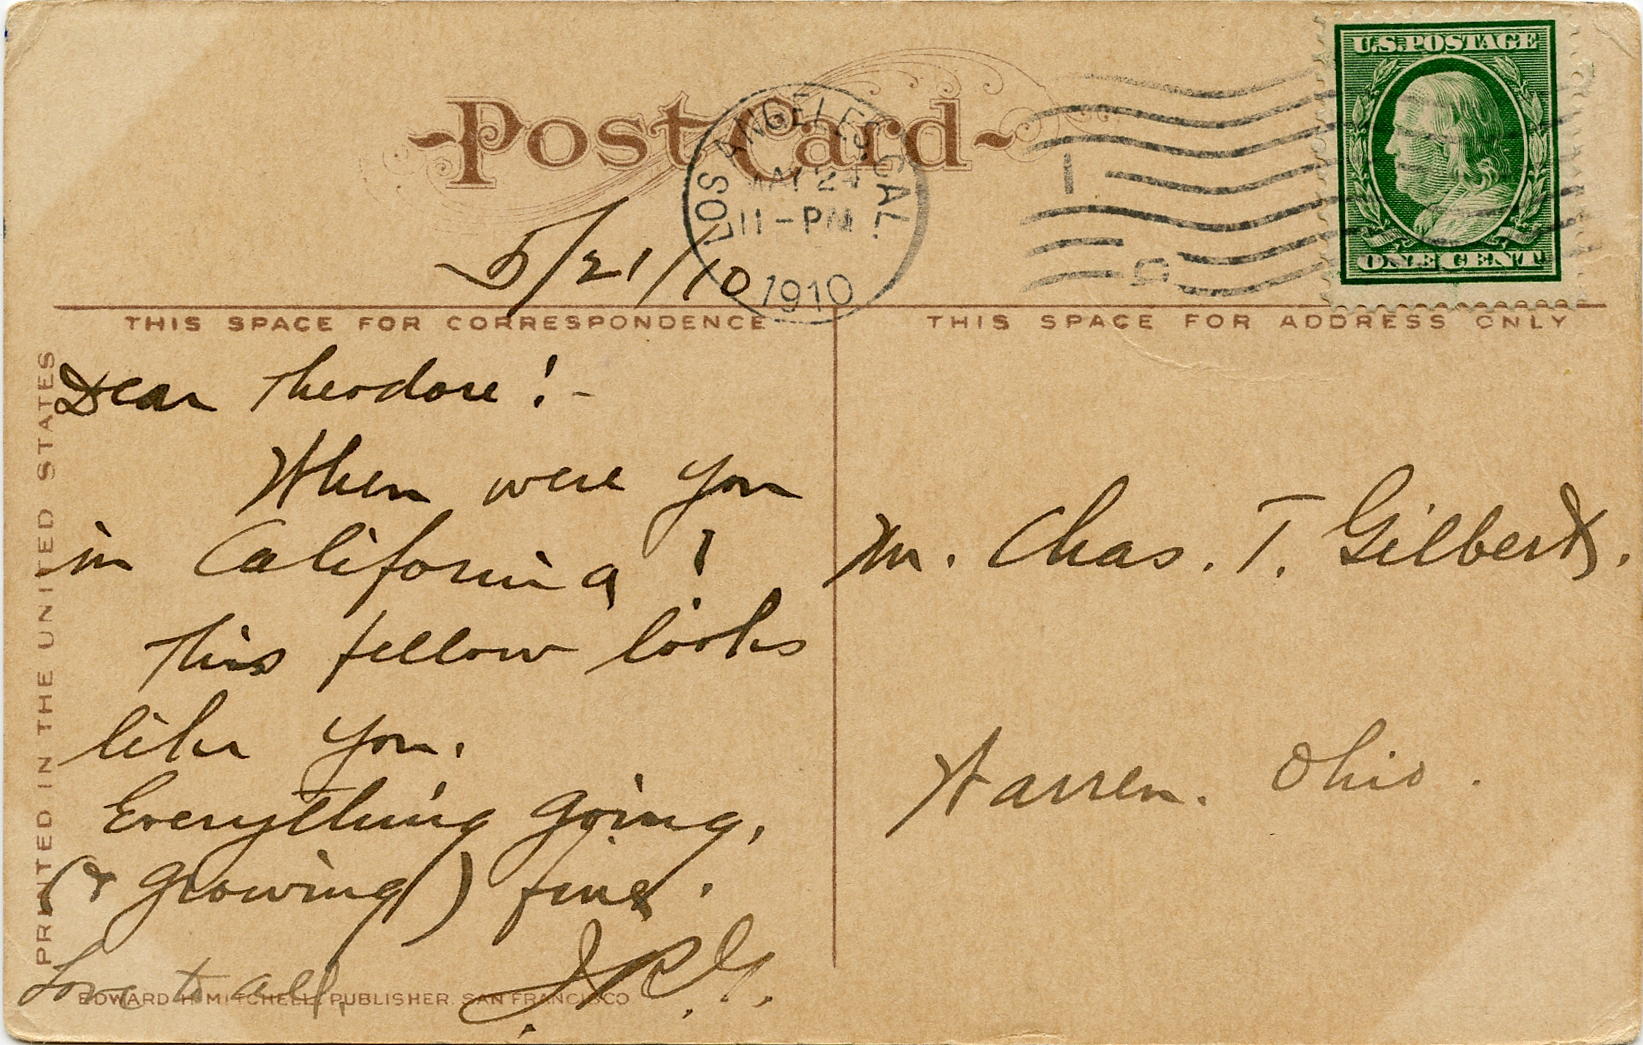 Post Card
U.S. POSTAGE
ONE CENT
LOS ANGELES, CAL.
MAY 24
11 - PM
1910
5/21/10
THIS SPACE FOR CORRESPONDENCE
THIS SPACE FOR ADDRESS ONLY
PRINTED IN THE UNITED STATES
Dear Theodore! -
When were you
in California!
This fellow looks
like you.
Everything going,
(& growing) fine.
Love to all,
Mr. Chas. T. Gilbert.
Warren. Ohio.
EDWARD H. MITCHELL, PUBLISHER, SAN FRANCISCO